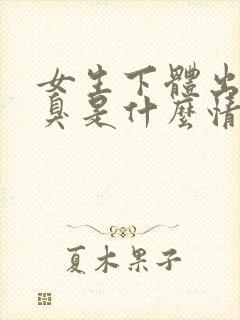 女生下體出
臭是什麼情
夏木果子